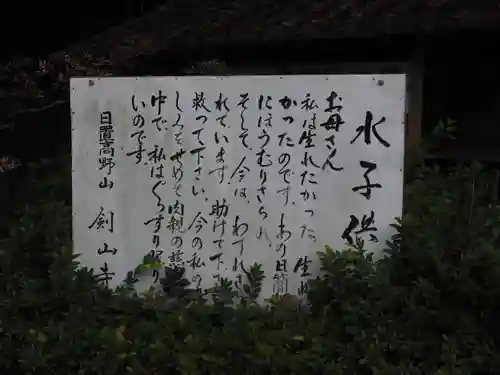 水子供
お母さん
私は生れたかった。生
かったのです。ある日簡
にほうむりさられ
そして、今は、わすれ
れています。助けて下
救って下さい。今の私の
しくそせめて肉親の慈
中で、私はぐっすり眠り
いのです。
日置高野山 剣山寺